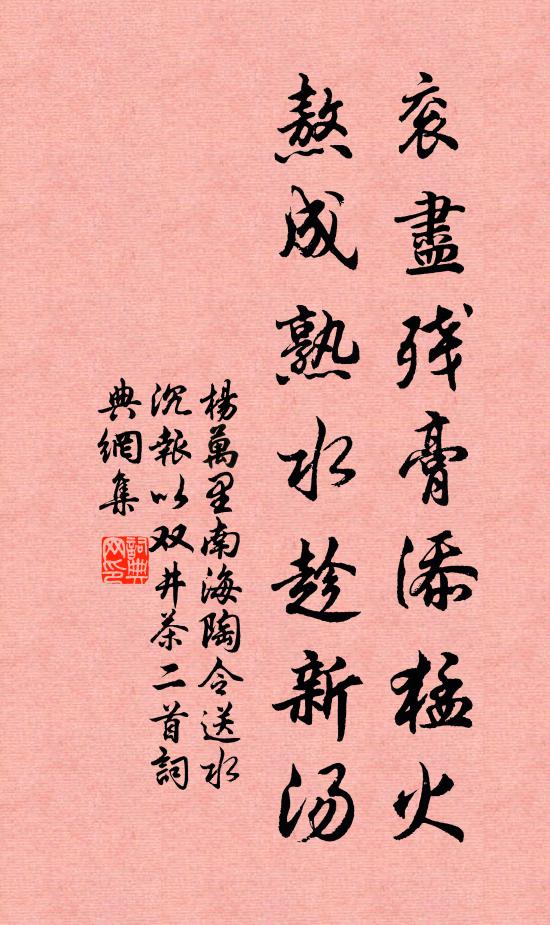 衮盡残膏添猛火
熬成熟水趁新汤
楊萬里南海陶令送水
沉報以双井茶二首詞
典網集
詞典
网印